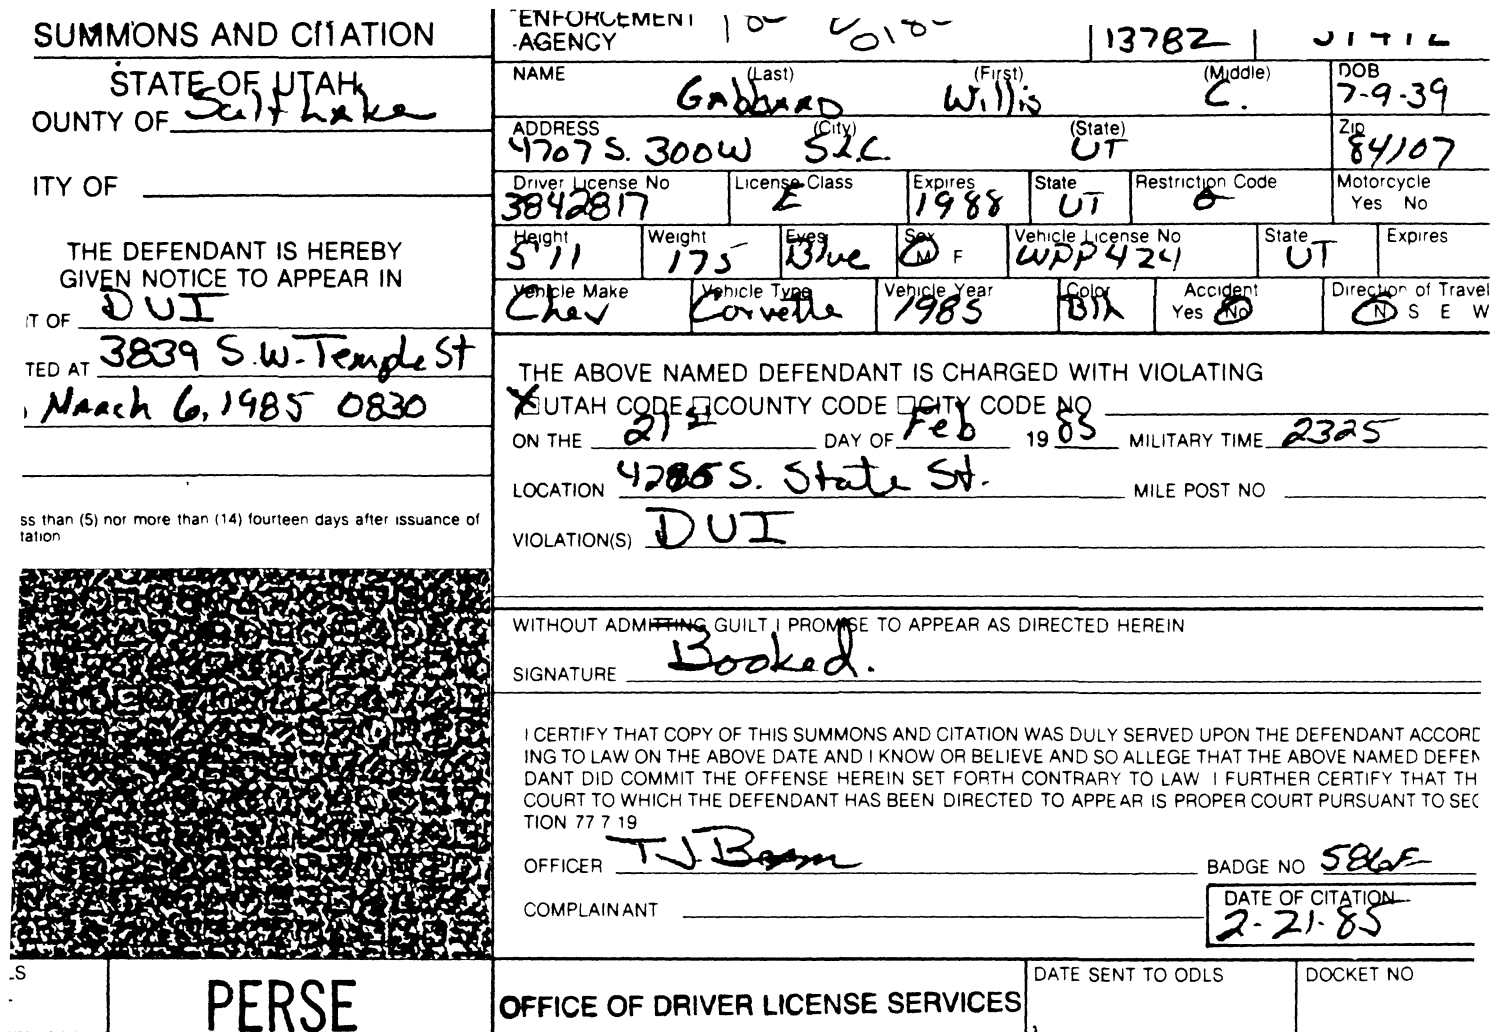 SUMMONS AND CITATION
STATE OF UTAH
OUNTY OF Salt Lake
ITY OF
THE DEFENDANT IS HEREBY
GIVEN NOTICE TO APPEAR IN
IT OF DUI
TED AT 3839 S.W. Temple St
March 6, 1985 0830
ss than (5) nor more than (14) fourteen days after issuance of
tation
LS
PERSE
ENFORCEMENT
AGENCY
13782
NAME (Last) (First) (Middle) DOB
Gabbard Willis C. 7-9-39
ADDRESS (City) (State) Zip
4707 S. 300W SLC. UT 84107
Driver License No License Class Expires State Restriction Code Motorcycle
3842817 E 1988 UT Yes No
Height Weight Eyes Sex Vehicle License No State Expires
5'11 175 Blue M F WPP424 UT
Vehicle Make Vehicle Type Vehicle Year Color Accident Direction of Travel
Chev Corvette 1985 Blk Yes No N S E W
THE ABOVE NAMED DEFENDANT IS CHARGED WITH VIOLATING
X UTAH CODE COUNTY CODE CITY CODE NO
ON THE 21st DAY OF Feb 1985 MILITARY TIME 2325
LOCATION S. State St. MILE POST NO
VIOLATION(S) DUI
WITHOUT ADMITTING GUILT I PROMISE TO APPEAR AS DIRECTED HEREIN
SIGNATURE Booked.
I CERTIFY THAT COPY OF THIS SUMMONS AND CITATION WAS DULY SERVED UPON THE DEFENDANT ACCORD
ING TO LAW ON THE ABOVE DATE AND I KNOW OR BELIEVE AND SO ALLEGE THAT THE ABOVE NAMED DEFEN
DANT DID COMMIT THE OFFENSE HEREIN SET FORTH CONTRARY TO LAW I FURTHER CERTIFY THAT TH
COURT TO WHICH THE DEFENDANT HAS BEEN DIRECTED TO APPEAR IS PROPER COURT PURSUANT TO SEC
TION 77 7 19
OFFICER TJ BADGE NO
COMPLAINANT
DATE OF CITATION
2-21-85
OFFICE OF DRIVER LICENSE SERVICES
DATE SENT TO ODLS
DOCKET NO